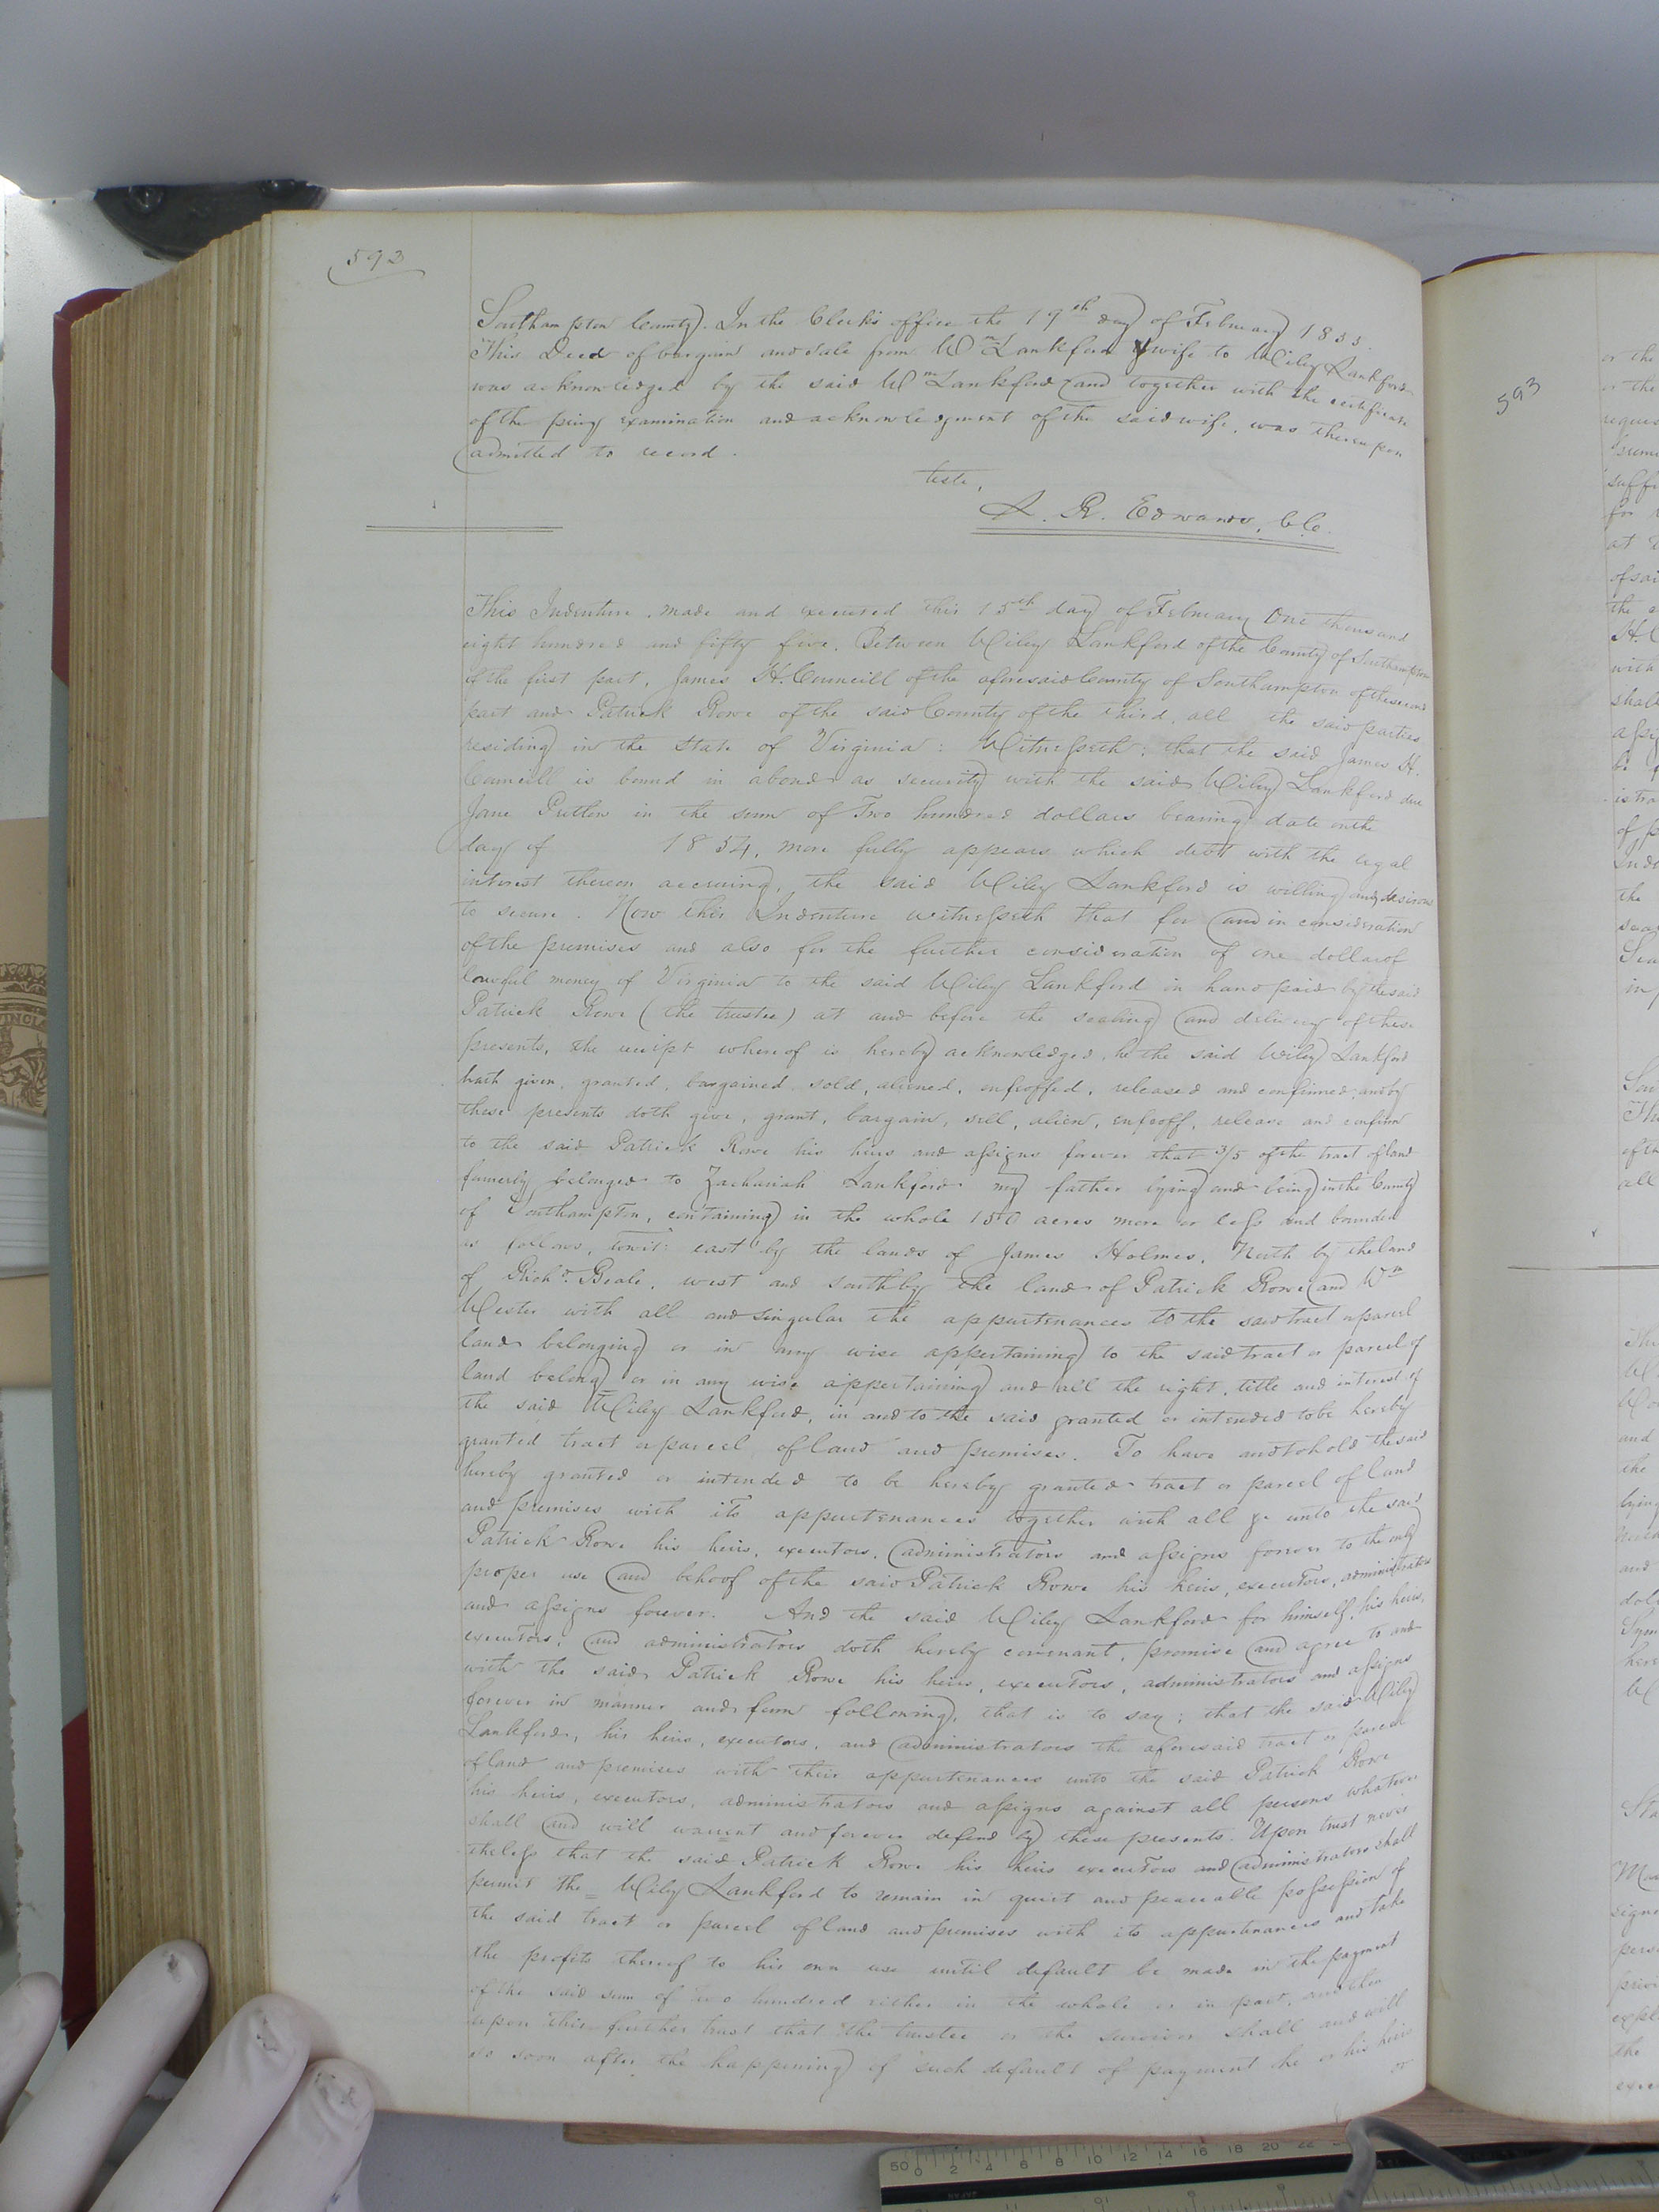 592
Southampton County. In the Clerk's office the 19th day of February 1855.
This Deed of bargain and sale from Wm Lankford & wife to Wiley Lankford
was acknowledged by the said Wm Lankford and together with the certificate
of the privy examination and acknowledgment of the said wife, was thereupon
admitted to record.
teste,
L. R. Edwards, C.C.
This Indenture made and executed this 15th day of February One thousand
eight hundred and fifty five, Between Wiley Lankford of the County of Southampton
of the first part, James H. Councill of the aforesaid County of Southampton of the second
part and Patrick Rowe of the said County of the third, all the said parties
residing in the State of Virginia: Witnesseth: that the said James H.
Councill is bound in a bond as security with the said Wiley Lankford due
Jane in the sum of Two hundred dollars bearing date on the
day of 1854, more fully appears which debt with the legal
interest thereon accruing, the said Wiley Lankford is willing and desirous
to secure. Now this Indenture witnesseth that for and in consideration
of the premises and also for the further consideration of one dollar of
lawful money of Virginia to the said Wiley Lankford in hand paid by the said
Patrick Rowe (the trustee) at and before the sealing and delivery of these
presents, the receipt whereof is hereby acknowledged, he the said Wiley Lankford
hath given, granted, bargained, sold, aliened, enfeoffed, released and confirmed, and by
these presents doth give, grant, bargain, sell, alien, enfeoff, release and confirm
to the said Patrick Rowe his heirs and assigns forever that 3/5 of the tract of land
formerly belonged to Zachariah Lankford my father lying and being in the County
of Southampton, containing in the whole 150 acres more or less and bounded
as follows, towit: east by the lands of James Holmes, North by the land
of Richd. Beale, west and south by the land of Patrick Rowe and Wm
Wester with all and singular the appurtenances to the said tract or parcel
land belonging or in any wise appertaining to the said tract or parcel of
land belong or in any wise appertaining and all the right, title and interest of
the said Wiley Lankford, in and to the said granted or intended to be hereby
granted tract or parcel of land and premises. To have and to hold the said
hereby granted or intended to be hereby granted tract or parcel of land
and premises with its appurtenances together with all &c unto the said
Patrick Rowe his heirs, executors, administrators and assigns forever to the only
proper use and behoof of the said Patrick Rowe his heirs, executors, administrators
and assigns forever. And the said Wiley Lankford for himself, his heirs,
executors, and administrators doth hereby covenant, promise and agree to and
with the said Patrick Rowe his heirs, executors, administrators and assigns
forever in manner and form following, that is to say; that the said Wiley
Lankford, his heirs, executors, and administrators the aforesaid tract or parcel
of land and premises with their appurtenances unto the said Patrick Rowe
his heirs, executors, administrators and assigns against all persons whatever
shall and will warrent and forever defend by these presents. Upon trust never
theless that the said Patrick Rowe his heirs executors and administrators shall
permit the = Wiley Lankford to remain in quiet and peaceable possession of
the said tract or parcel of land and premises with its appurtenances and take
the profits thereof to his own use until default be made in the payment
of the said sum of two hundred either in the whole or in part, and then
upon this further trust that the trustee or the survivor shall and will
so soon after the happening of such default of payment he or his heirs
or
593